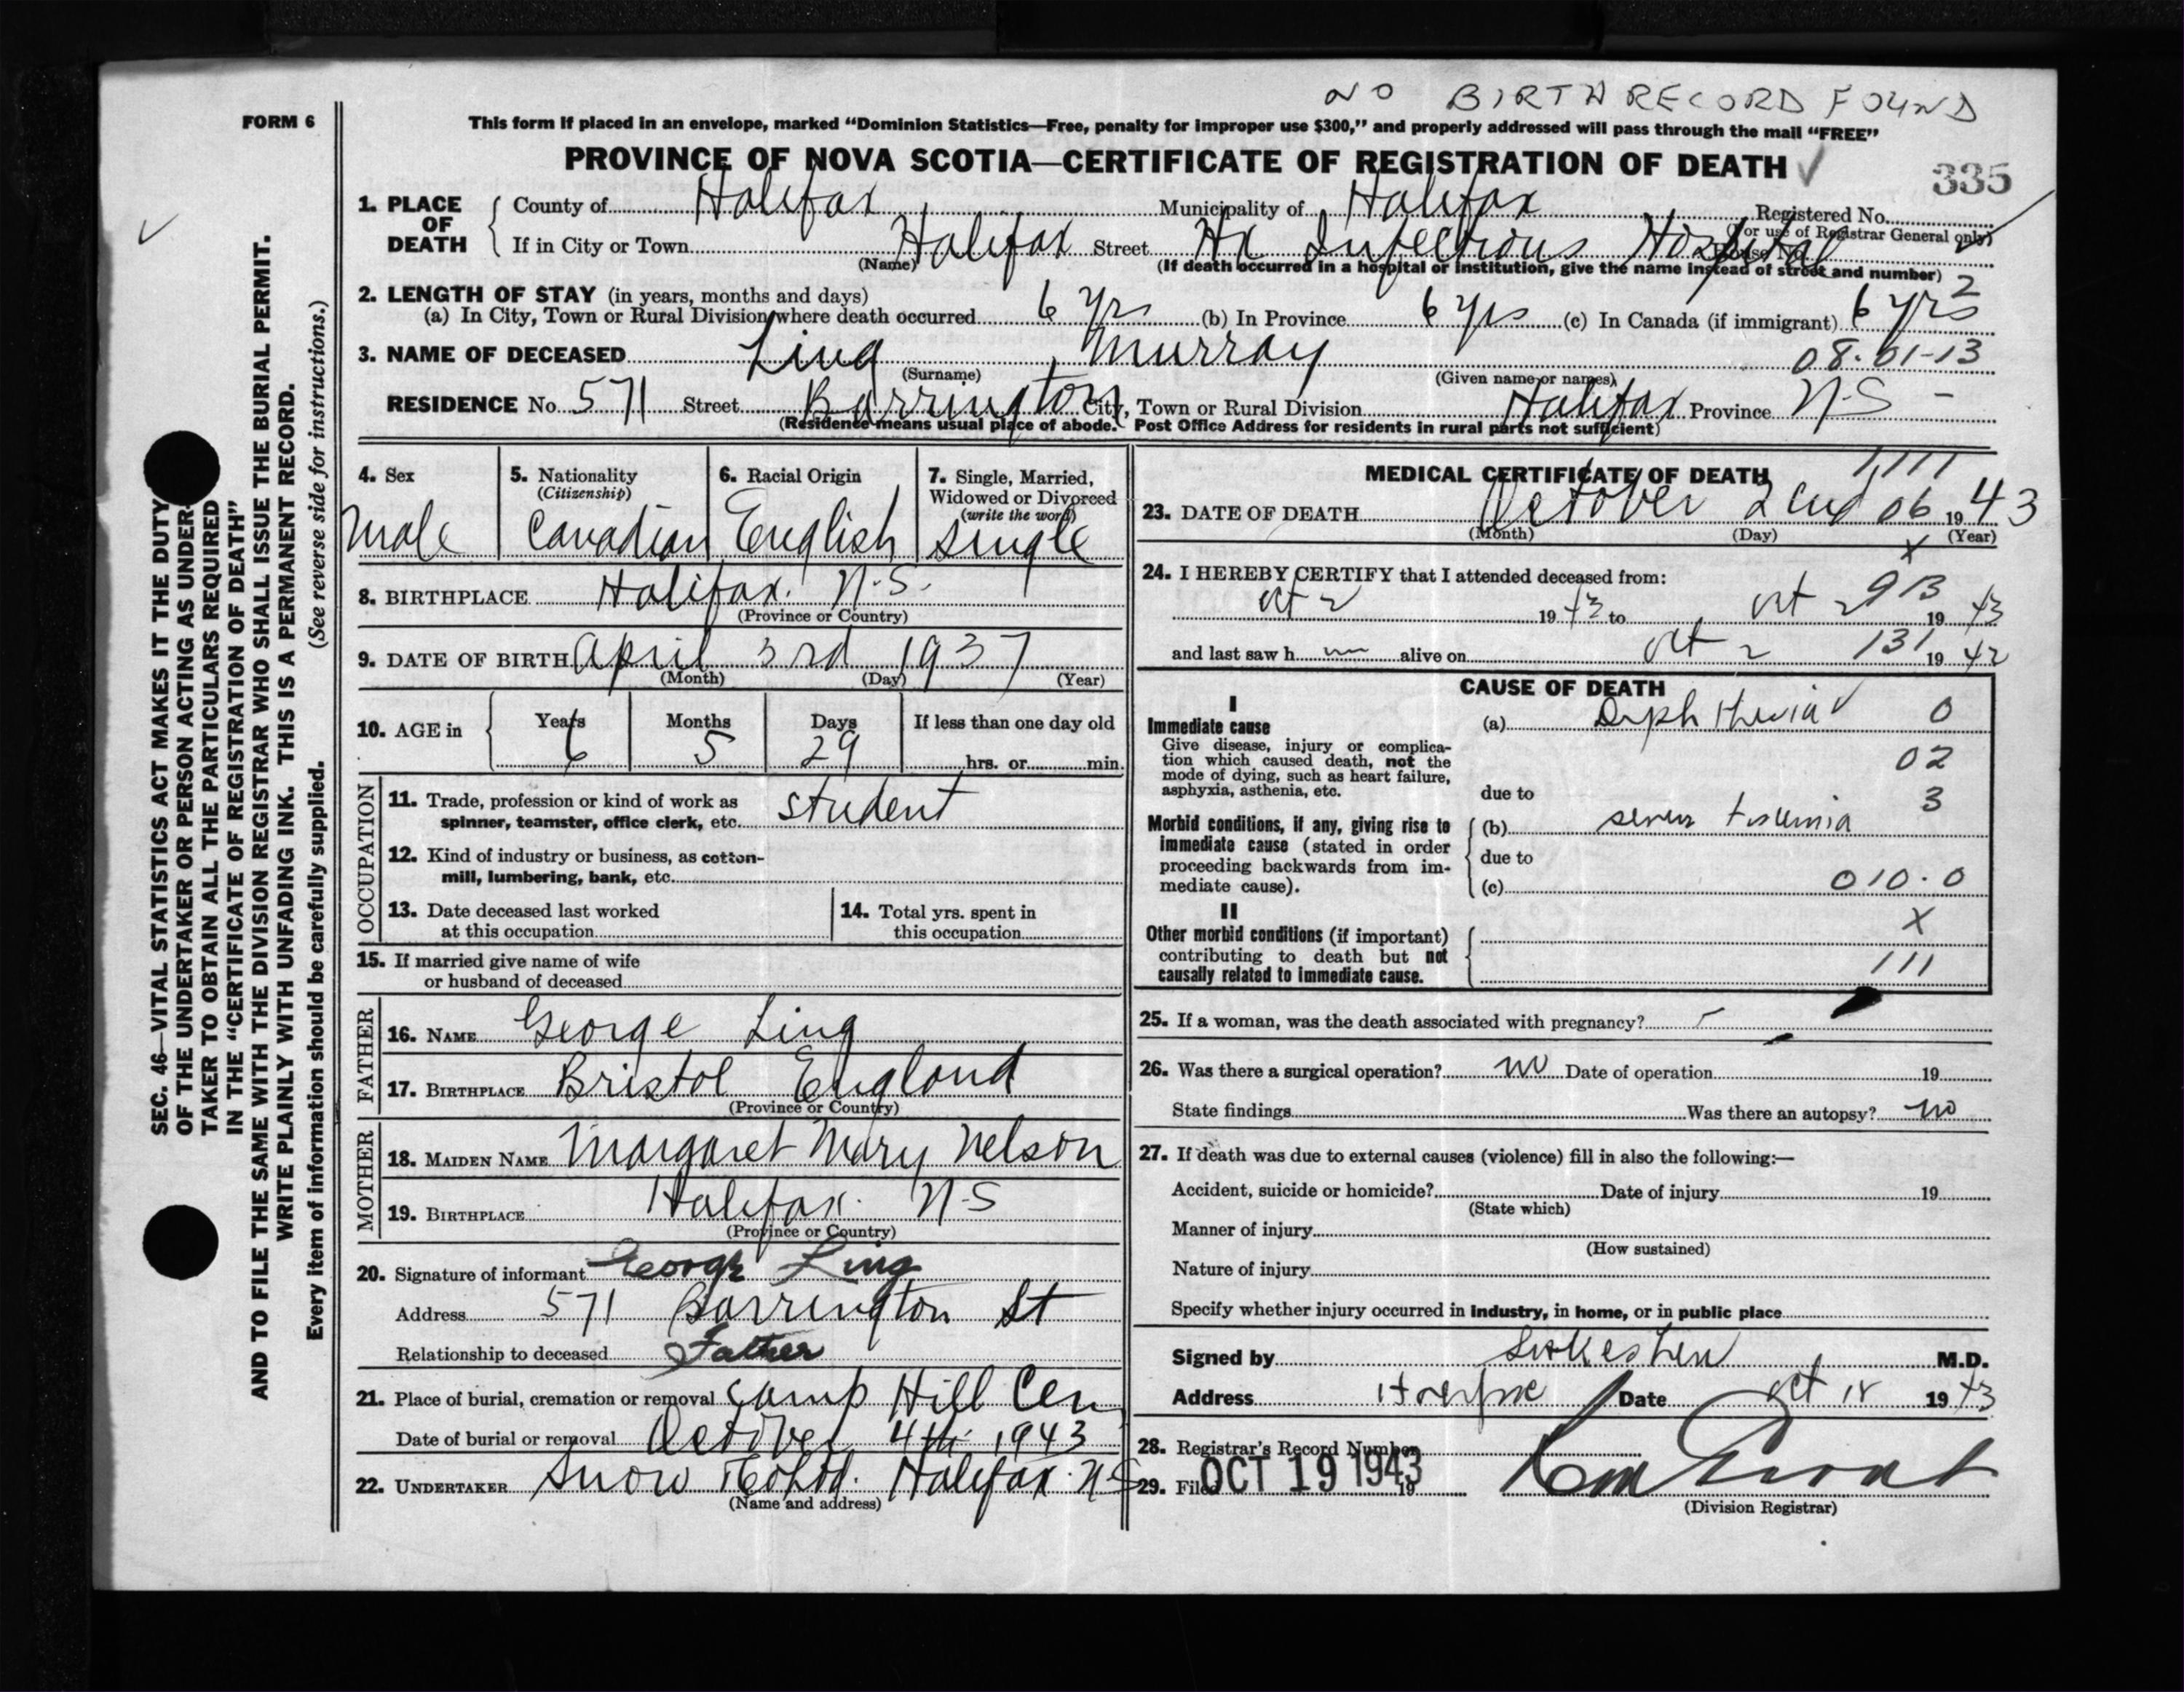 NO BIRTH RECORD FOUND
FORM 6
This form if placed in an envelope, marked “Dominion Statistics—Free, penalty for improper use $300,” and properly addressed will pass through the mail “FREE”
PROVINCE OF NOVA SCOTIA—CERTIFICATE OF REGISTRATION OF DEATH ✓
335
1. PLACE OF DEATH { County of Halifax Municipality of Halifax Registered No.
(For use of Registrar General only)
If in City or Town Halifax Street Hx Infectious Hospital House No.
(Name) (If death occurred in a hospital or institution, give the name instead of street and number)
2
2. LENGTH OF STAY (in years, months and days)
(a) In City, Town or Rural Division where death occurred 6 yrs (b) In Province 6 yrs (c) In Canada (if immigrant) 6 yrs
3. NAME OF DECEASED Ling, Murray 08-01-13
(Surname) (Given name or names)
RESIDENCE No. 571 Street Barrington City, Town or Rural Division Halifax Province N-S -
(Residence means usual place of abode. Post Office Address for residents in rural parts not sufficient)
4. Sex
Male
5. Nationality
(Citizenship)
Canadian
6. Racial Origin
English
7. Single, Married,
Widowed or Divorced
(write the word)
Single
8. BIRTHPLACE Halifax. N-S-
(Province or Country)
9. DATE OF BIRTH April 3rd 1937
(Month) (Day) (Year)
10. AGE in { Years Months Days If less than one day old
6 5 29 hrs. or min.
OCCUPATION
11. Trade, profession or kind of work as
spinner, teamster, office clerk, etc. Student
12. Kind of industry or business, as cotton-
mill, lumbering, bank, etc.
13. Date deceased last worked
at this occupation
14. Total yrs. spent in
this occupation
15. If married give name of wife
or husband of deceased
FATHER
16. NAME George Ling
17. BIRTHPLACE Bristol England
(Province or Country)
MOTHER
18. MAIDEN NAME Margaret Mary Nelson
19. BIRTHPLACE Halifax. N-S
(Province or Country)
20. Signature of informant George Ling
Address 571 Barrington St
Relationship to deceased Father
21. Place of burial, cremation or removal Camp Hill Cem
Date of burial or removal October 4th 1943
22. UNDERTAKER Snow & Co Ltd. Halifax. N-S
(Name and address)
MEDICAL CERTIFICATE OF DEATH
1111
23. DATE OF DEATH October 2nd 06 1943
(Month) (Day) (Year)
X
24. I HEREBY CERTIFY that I attended deceased from:
913
Oct 2 1943 to Oct 2 1943
and last saw h im alive on Oct 2 131 1942
CAUSE OF DEATH
I
Immediate cause (a) Diphtheria ✓ 0
Give disease, injury or complica-
tion which caused death, not the
mode of dying, such as heart failure,
asphyxia, asthenia, etc.
02
due to 3
Morbid conditions, if any, giving rise to
immediate cause (stated in order
proceeding backwards from im-
mediate cause).
(b) severe toxemia
due to
(c) 010.0
II
Other morbid conditions (if important)
contributing to death but not
causally related to immediate cause.
X
111
25. If a woman, was the death associated with pregnancy?
26. Was there a surgical operation? no Date of operation 19
State findings Was there an autopsy? no
27. If death was due to external causes (violence) fill in also the following:—
Accident, suicide or homicide? Date of injury 19
(State which)
Manner of injury
(How sustained)
Nature of injury
Specify whether injury occurred in industry, in home, or in public place
Signed by M.D.
Address Date Oct 18 1943
28. Registrar's Record Number
29. Filed OCT 19 1943 19
(Division Registrar)
SEC. 46—VITAL STATISTICS ACT MAKES IT THE DUTY
OF THE UNDERTAKER OR PERSON ACTING AS UNDER-
TAKER TO OBTAIN ALL THE PARTICULARS REQUIRED
IN THE “CERTIFICATE OF REGISTRATION OF DEATH”
AND TO FILE THE SAME WITH THE DIVISION REGISTRAR WHO SHALL ISSUE THE BURIAL PERMIT.
WRITE PLAINLY WITH UNFADING INK. THIS IS A PERMANENT RECORD.
Every item of information should be carefully supplied. (See reverse side for instructions.)